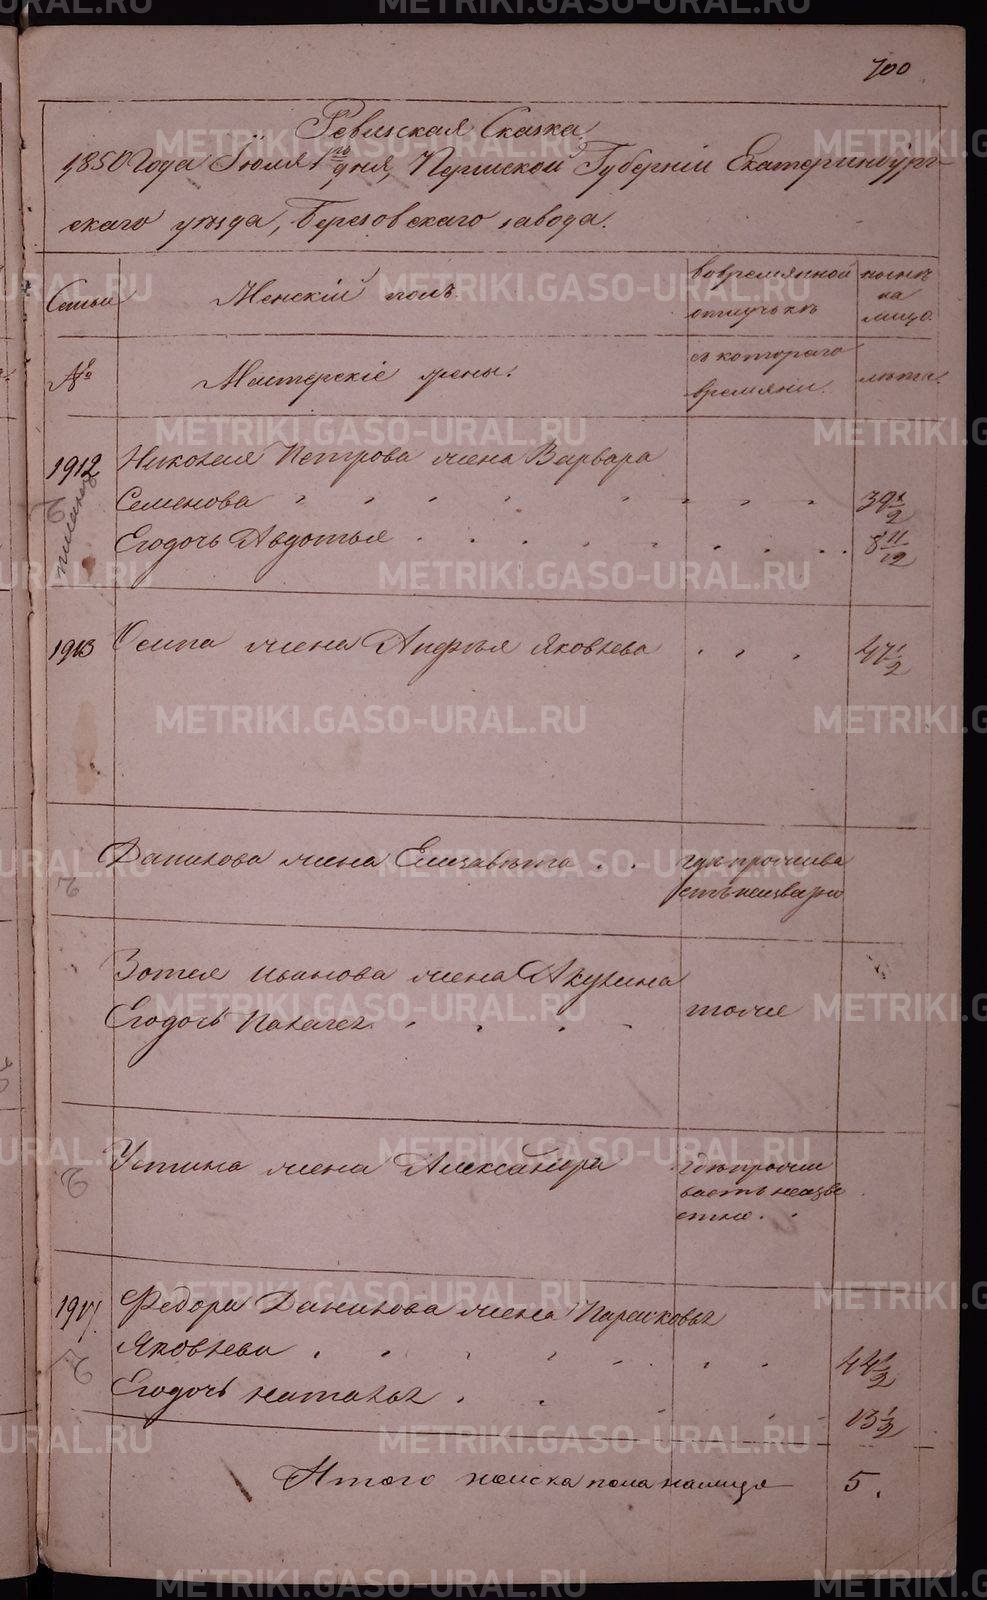 700
Ревизская Сказка
1850 Года Июля 1го дня, Пермской Губерніи Екатеринбург-
скаго уѣзда, Березовскаго завода.
Семьи
Женскій полъ
вовремянной
отлучькѣ
нынѣ
на
лицо.
№
Мастерскіе жены:
съ котораго
времяни.
лѣта.
1912
Николая Петрова жена Варвара
Семенова
39 1/2
Егодочь Авдотья
8 11/12
1913
Осипа жена Анфиѣя Яковлева
47 1/2
Данилова жена Елизавѣта
гдѣ прожива
етъ неизвѣстно
Зотея Иванова жена Акулина
Егодочь Палагея
тоже
Устина жена Александра
гдѣ прожи
ваетъ неизве
стно.
1917.
Федора Данилова жена Парасковья
Яковлева
44 1/2
Егодочь Наталья
13 1/2
Итого женска пола налицо
5.
METRIKI.GASO-URAL.RU